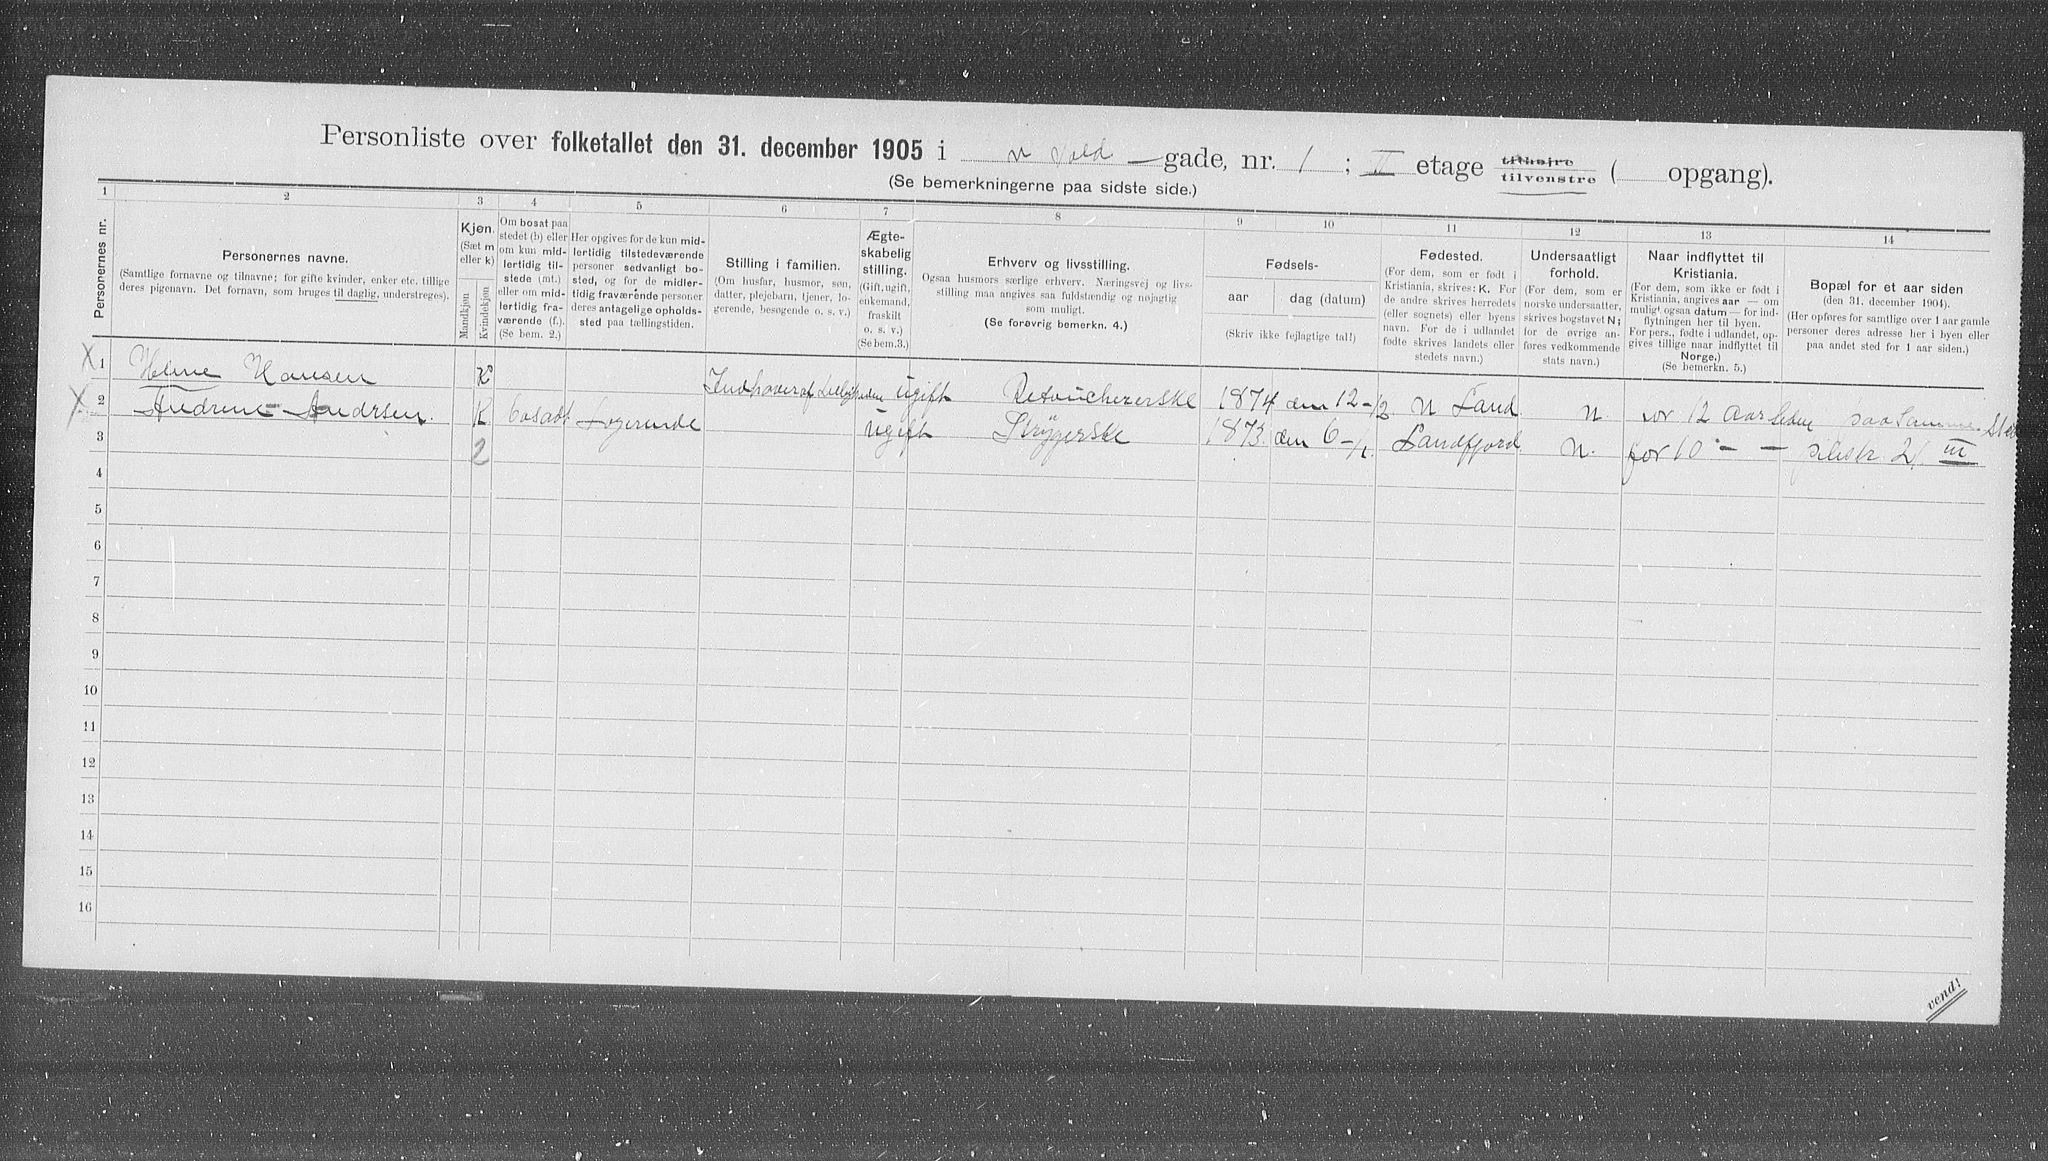 Personliste over folketallet den 31. december 1905 i N Vold gade, nr. 1 ; II etage tilhøire tilvenstre ( opgang).
(Se bemerkningerne paa sidste side.)
1 2 3 4 5 6 7 8 9 10 11 12 13 14
Personernes nr.
Personernes navne.
(Samtlige fornavne og tilnavne; for gifte kvinder, enker etc. tillige
deres pigenavn. Det fornavn, som bruges til daglig, understreges).
Kjøn.
(Sæt m
eller k)
Mandkjøn
Kvindekjøn
Om bosat paa
stedet (b) eller
om kun mid-
lertidig til-
stede (mt.)
eller om mid-
lertidig fra-
værende (f.).
(Se bem. 2.)
Her opgives for de kun mid-
lertidig tilstedeværende
personer sedvanligt bo-
sted, og for de midler-
tidig fraværende personer
deres antagelige opholds-
sted paa tællingstiden.
Stilling i familien.
(Om husfar, husmor, søn,
datter, plejebarn, tjener, lo-
gerende, besøgende o. s. v.)
Ægte-
skabelig
stilling.
(Gift, ugift,
enkemand,
fraskilt
o. s. v.)
(Se bem. 3.)
Erhverv og livsstilling.
Ogsaa husmors særlige erhverv. Næringsvej og livs-
stilling maa angives saa fuldstændig og nøjagtig
som muligt.
(Se forøvrig bemerkn. 4.)
Fødsels-
aar
dag (datum)
(Skriv ikke fejlagtige tal!)
Fødested.
(For dem, som er født i
Kristiania, skrives: K. For
de andre skrives herredets
(eller sognets) eller byens
navn. For de i udlandet
fødte skrives landets eller
stedets navn.)
Undersaatligt
forhold.
(For dem, som er
norske undersaatter,
skrives bogstavet N;
for de øvrige an-
føres vedkommende
stats navn.)
Naar indflyttet til
Kristiania.
(For dem, som ikke er født i
Kristiania, angives aar — om
muligt ogsaa datum — for ind-
flytningen her til byen.
For pers., fødte i udlandet, op-
gives tillige naar indflyttet til
Norge.)
(Se bemerkn. 5.)
Bopæl for et aar siden
(den 31. december 1904).
(Her opføres for samtlige over 1 aar gamle
personer deres adresse her i byen eller
paa andet sted for 1 aar siden.)
X 1 Helene Hansen K Indhaver af Leiligheden ugift Retouchererske 1874 den 12-/2 N Land N. for 12 aar siden paa samme Sted
X 2 Andrine Andrsen. K bosadt Logerende ugift Strygerske 1873. den 6-/1. Sandfjord N. for 10 - - Pilestr. 21 III
3
2
4
5
6
7
8
9
10
11
12
13
14
15
16
vend!